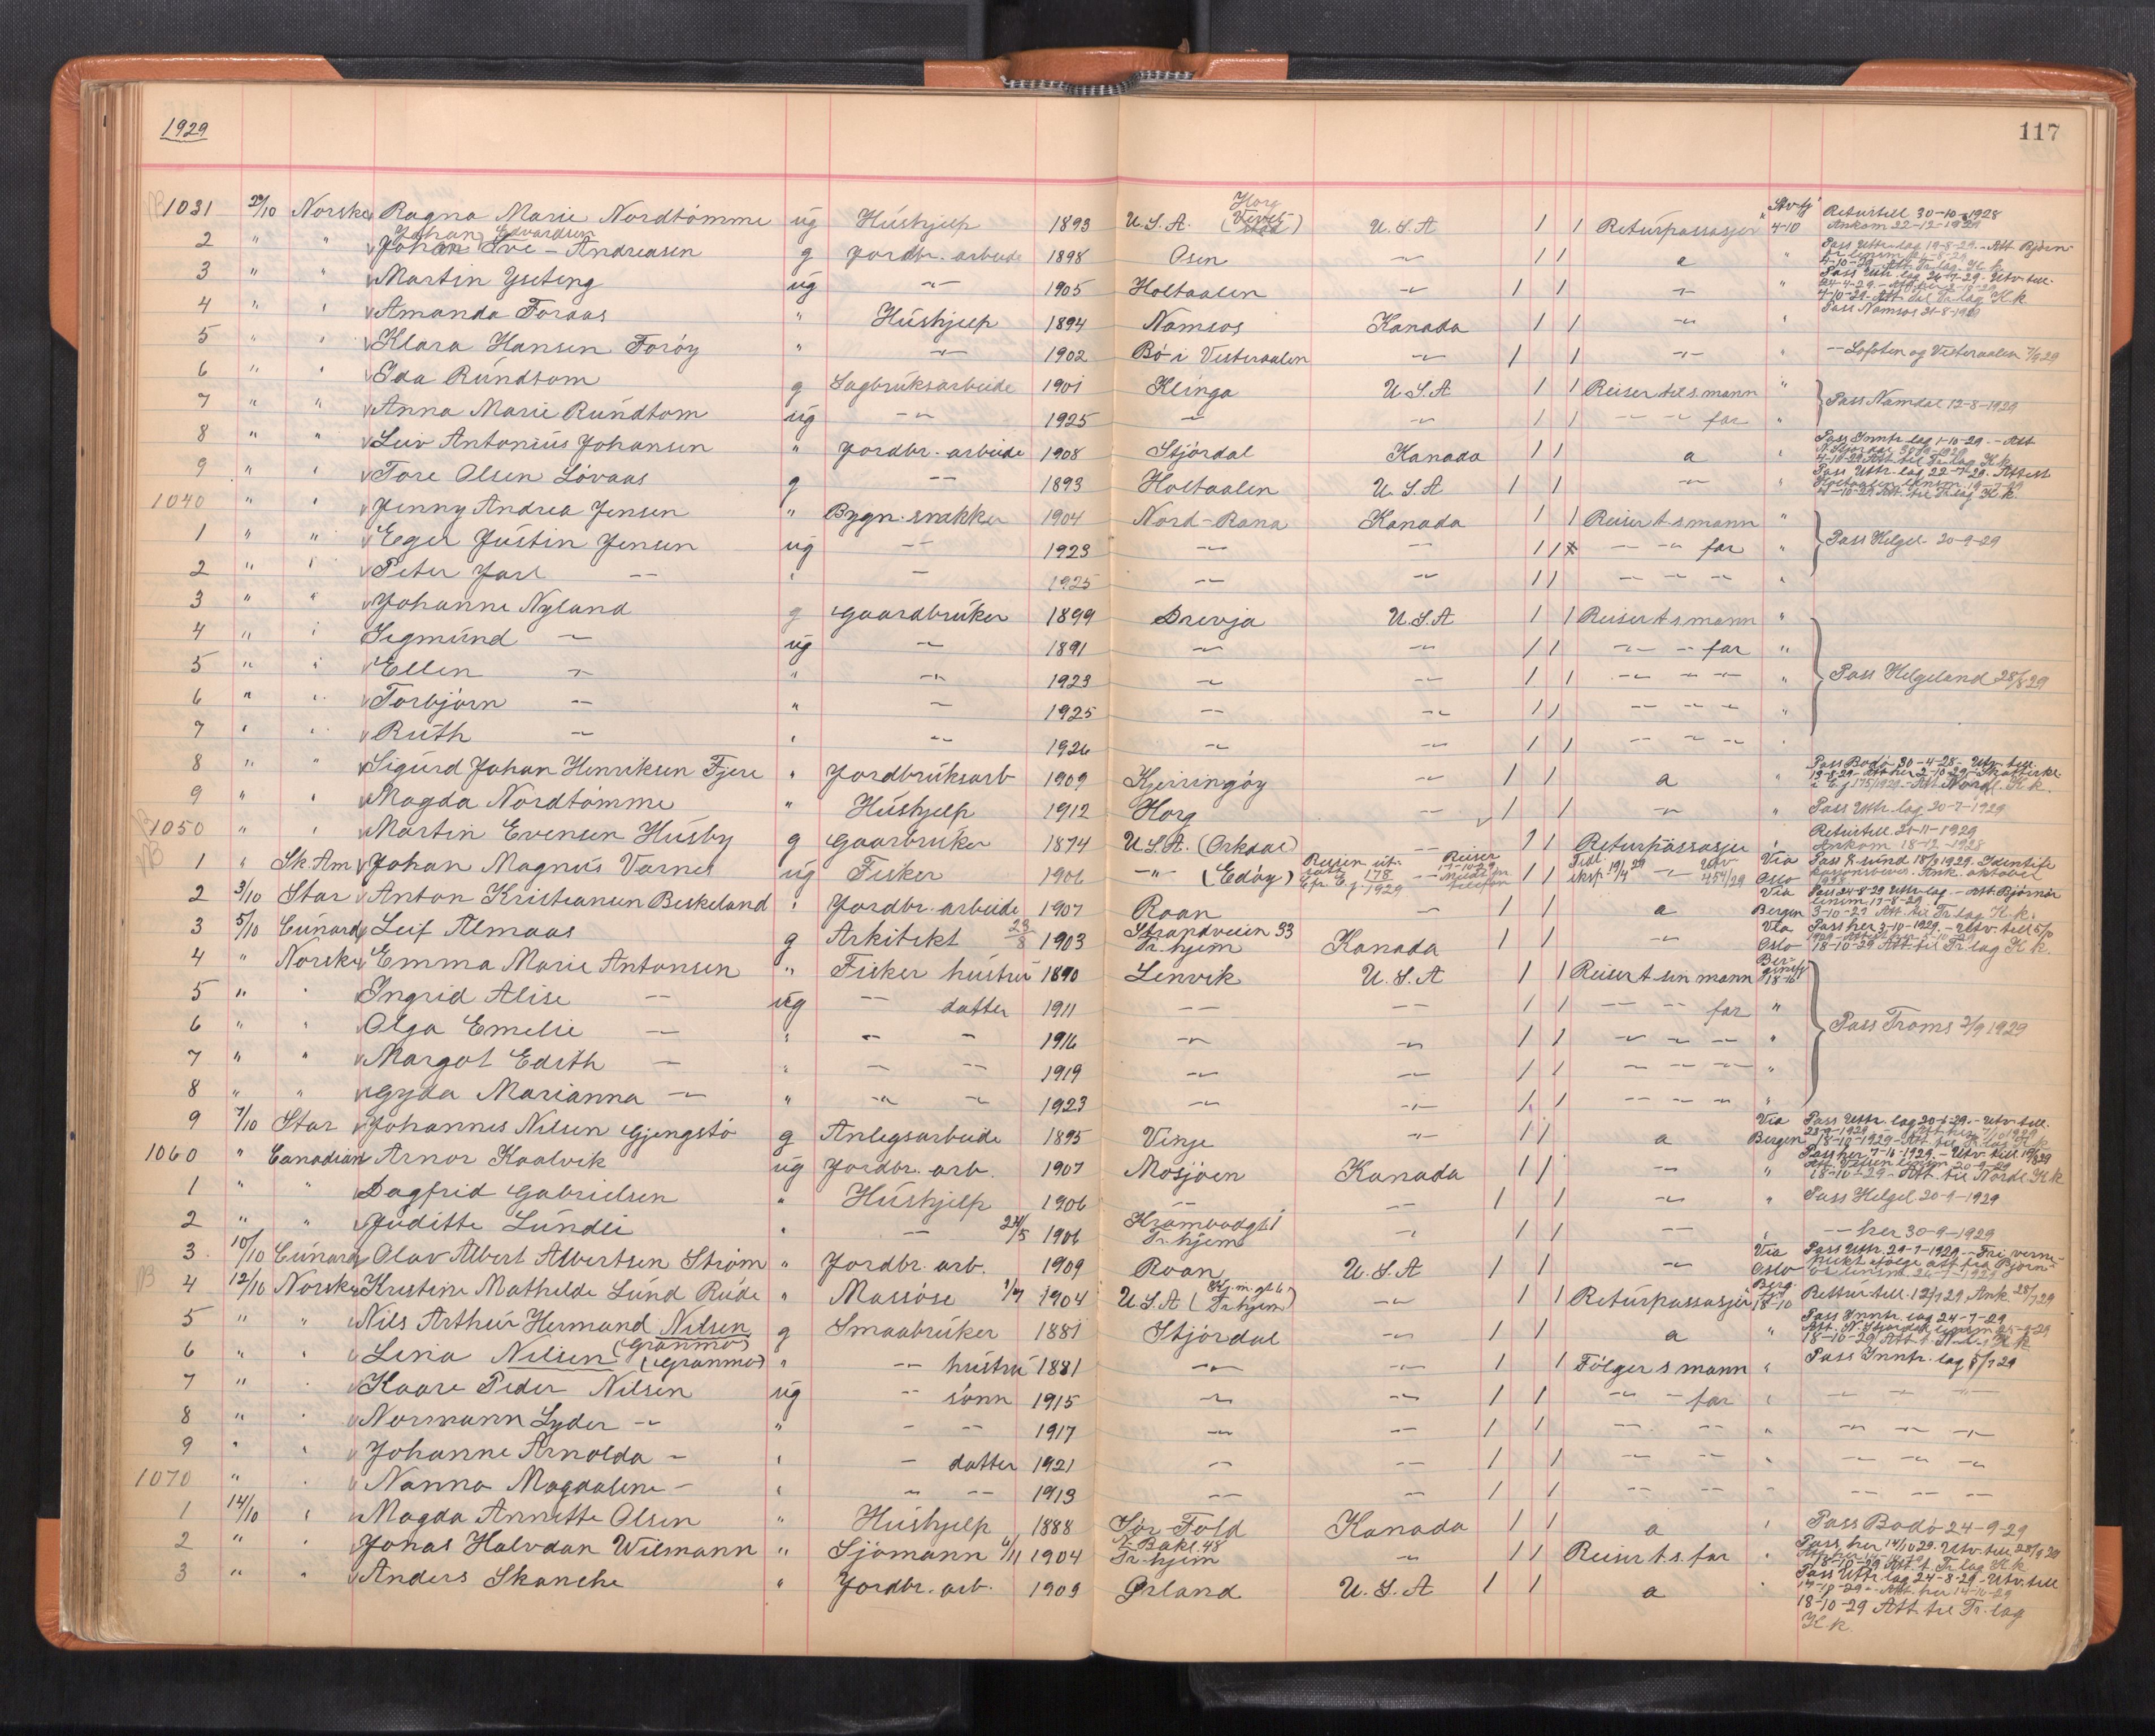 1929
117
1031 29/10 Norske Ragna Marie Nordtømme ug Hushjelp 1893 U.S.A. (Horg) U.S.A 1 1 Returpassasjer 4-10 Returtill 30-10-1928 Ankom 22-12-1928
2 " " Johan Edvardsen Johan Ive-Andreasen g Jordbr. arbeide 1898 Osen -"- 1 1 a " Pass Utter.lag 19-8-29.- Att Bjørn-
3 " " Martin Yseteng ug -"- 1905 Holtaalen -"- 1 1 -"- " Pass Uttr. lag 20-7-29- Utv. till. 4-10-29- Att. til Tr.lag K.k
4 " " Amanda Foraas " Hushjelp 1894 Namsos Kanada 1 1 -"- " Pass Namsos 21-8-1929
5 " " Klara Hansen Forøy " -"- 1902 Bø i Vesteraalen -"- 1 1 -"- " -"- Lofoten og Vesteraalen 7/9 29
6 " " Ida Rundtom g Sagbruksarbeide 1901 Klinga U.S.A 1 1 Reiser til s. mann " Pass Namdal 12-8-1929
7 " " Anna Marie Rundtom ug -"- 1925 -"- -"- 1 1 -"- -"- far "
8 " " Leiv Antonius Johansen " Jordbr. arbeide 1908 Stjørdal Kanada 1 1 a " Pass Inntr. lag 1-10-29.- Att 4-10-29 Att. til Tr.lag K.k
9 " " Tore Olsen Løvaas g -"- 1893 Holtaalen U.S.A 1 1 -"- Pass Uttr. lag 22-7-29- Attest Holtaalen lensm. 19-7-29 4-10-29 Att. til Tr.lag K.k.
1040 " " Jenny Andrea Jensen " Bygn. snekker 1904 Nord-Rana Kanada 1 1 Reiser t. s mann " Pass Helgel. 20-9-29
1 " " Eger Justin Jensen ug -"- 1923 -"- -"- 1 1 -"- -"- far "
2 " " Peter Jarl -"- " -"- 1925 -"- -"- 1 1 -"- -"- -"- "
3 " " Johanne Nyland g Gaardbruker 1899 Drevja U.S.A 1 1 Reiser t. s mann " Pass Helgeland 28/8 29
4 " " Sigmund -"- ug -"- 1891 -"- -"- 1 1 -"- -"- far "
5 " " Ellen -"- " -"- 1923 -"- -"- 1 1 -"- -"- -"- "
6 " " Torbjørn -"- " -"- 1925 -"- -"- 1 1 -"- -"- -"- "
7 " " Ruth -"- " -"- 1926 -"- -"- 1 1 -"- -"- -"- "
8 " " Sigurd Johan Henriksen Fjere " Jordbruksarb 1909 Kjerringøy -"- 1 1 a " Pass Bodø 30-4-28- Utv. till. 13-8-29- Att her 2-10-29- Skatterkl. E.j 175/1929- Att Nordl. K.k.
9 " " Magda Nordtømme " Hushjelp 1912 Horg -"- 1 1 -"- " Pass Uttr. lag 20-7-1929
1050 " " Martin Evensen Husby g Gaarbruker 1874 U.S.A. (Orkdal) -"- 1 1 Returpassasjer " Returtill. 21-11-1929 Ankom 18-12-1928
1 " Sk. Am Johan Magnus Varnes ug Fisker 1906 -"- (Edøy) Reisen ut- satt 178 Cfr. E.j-1929 Reiser 17-10-29 telefon 1 1 Via Oslo Pass K.sund 18/9 1929. Identite Ank. oktober 1928
2 3/10 Star Anton Kristiansen Beskeland " Jordbr. arbeide 1907 Roan -"- 1 1 a Via Bergen Pass 24-8-29 Uttr.lag.- Att. Bjørnør lensm. 17-8-29 3-10-29 Att. til Tr.lag K.k.
3 5/10 Cunard Leif Almaas g Arkitekt 23/8 1903 Strandveien 33 Tr.hjem Kanada 1 1 -"- Via Oslo Pass her 3-10-1929.- Utv. till 5/10 18-10-29 Att. til Tr.lag K.k.
4 " Norske Emma Marie Antonsen " Fisker hustru 1890 Lenvik U.S.A 1 1 Reiser t sin mann 18-10 Pass Troms 2/9 1929
5 " " Ingrid Alise -"- ug -"- datter 1911 -"- -"- 1 1 -"- -"- far "
6 " " Olga Emelie -"- " -"- -"- 1916 -"- -"- 1 1 -"- -"- -"- "
7 " " Margot Edith -"- " -"- -"- 1919 -"- -"- 1 1 -"- -"- -"- "
8 " " Gyda Marianna -"- " -"- -"- 1923 -"- -"- 1 1 -"- -"- -"- "
9 7/10 Star Johannes Nilsen Gjengstø g Anlegsarbeide 1895 Vinje -"- 1 1 a Via Bergen Pass Uttr. lag 20-6-29.- Utv. till. 18-10-1929- Att. til Tr.lag K.k
1060 " Canadian Arnor Kaalvik ug Jordbr. arb. 1907 Mosjøen Kanada 1 1 -"- " Pass her 7-10-1929.- Utv. till 19/8 29 18-10-29- Att. til Nordl. K.k
1 " " Dagfrid Gabrielsen " Hushjelp 1906 -"- -"- 1 1 -"- " Pass Helgel 20-9-1929
2 " " Juditte Lundli " -"- 24/5 1906 Krambodgt. 1 Tr.hjem -"- 1 1 -"- " -"- her 30-9-1929
3 10/10 Cunard Olav Albert Albertsen Strøm " Jordbr. arb. 1909 Roan U.S.A 1 1 -"- Via Oslo Pass Uttr. 29-7-1929- Fri verne- plikt ifølge att fra Bjørn- ør lensm.
4 12/10 Norske Kristine Mathilde Lund Rude " Massøse 1/7 1904 U.S.A (Tr.hjem) -"- 1 1 Returpassasjer 18-10 Retur-till. 12/7 29 Ank. 28/7 29
5 " " Nils Arthur Hermand Nilsen (Granmo) g Smaabruker 1881 Stjørdal -"- 1 1 a " Pass Inntr. lag 24-7-29 18-10-29 Att. t. Tr.lag K.k
6 " " Lina Nilsen (Granmo) " -"- hustru 1881 -"- -"- 1 1 Følger s mann " Pass Inntr. lag 5/7 29
7 " " Kaare Peder Nilsen ug -"- sønn 1915 -"- -"- 1 1 -"- -"- far " -"- -"- -"-
8 " " Normann Lyder -"- " -"- -"- 1917 -"- -"- 1 1 -"- -"- " -"- -"- -"-
9 " " Johanne Arnolda -"- " -"- datter 1921 -"- -"- 1 1 -"- -"- " -"- -"- -"-
1070 " " Nanna Magdalene -"- " -"- -"- 1913 -"- -"- 1 1 -"- -"- " -"- -"- -"-
1 14/10 " Magda Annette Olsen " Hushjelp 1888 Sør-Fold Kanada 1 1 a " Pass Bodø 24-9-29
2 " " Jonas Halvdan Wilmann " Sjømann 6/11 1904 N. Bakl. 48 Tr.hjem -"- 1 1 Reiser t. s. far " Pass her 14/10 29. Utv. till 28/9 29 18-10-29 Att. t. Tr.lag K.k
3 " " Anders Skanche " Jordbr. arb. 1903 Ørland U.S.A 1 1 a " Pass Uttr. lag 24-8-29- Utv. till 17-10-29- Att. her 14-10-29
18-10-29 Att. til Tr. lag
K.k.